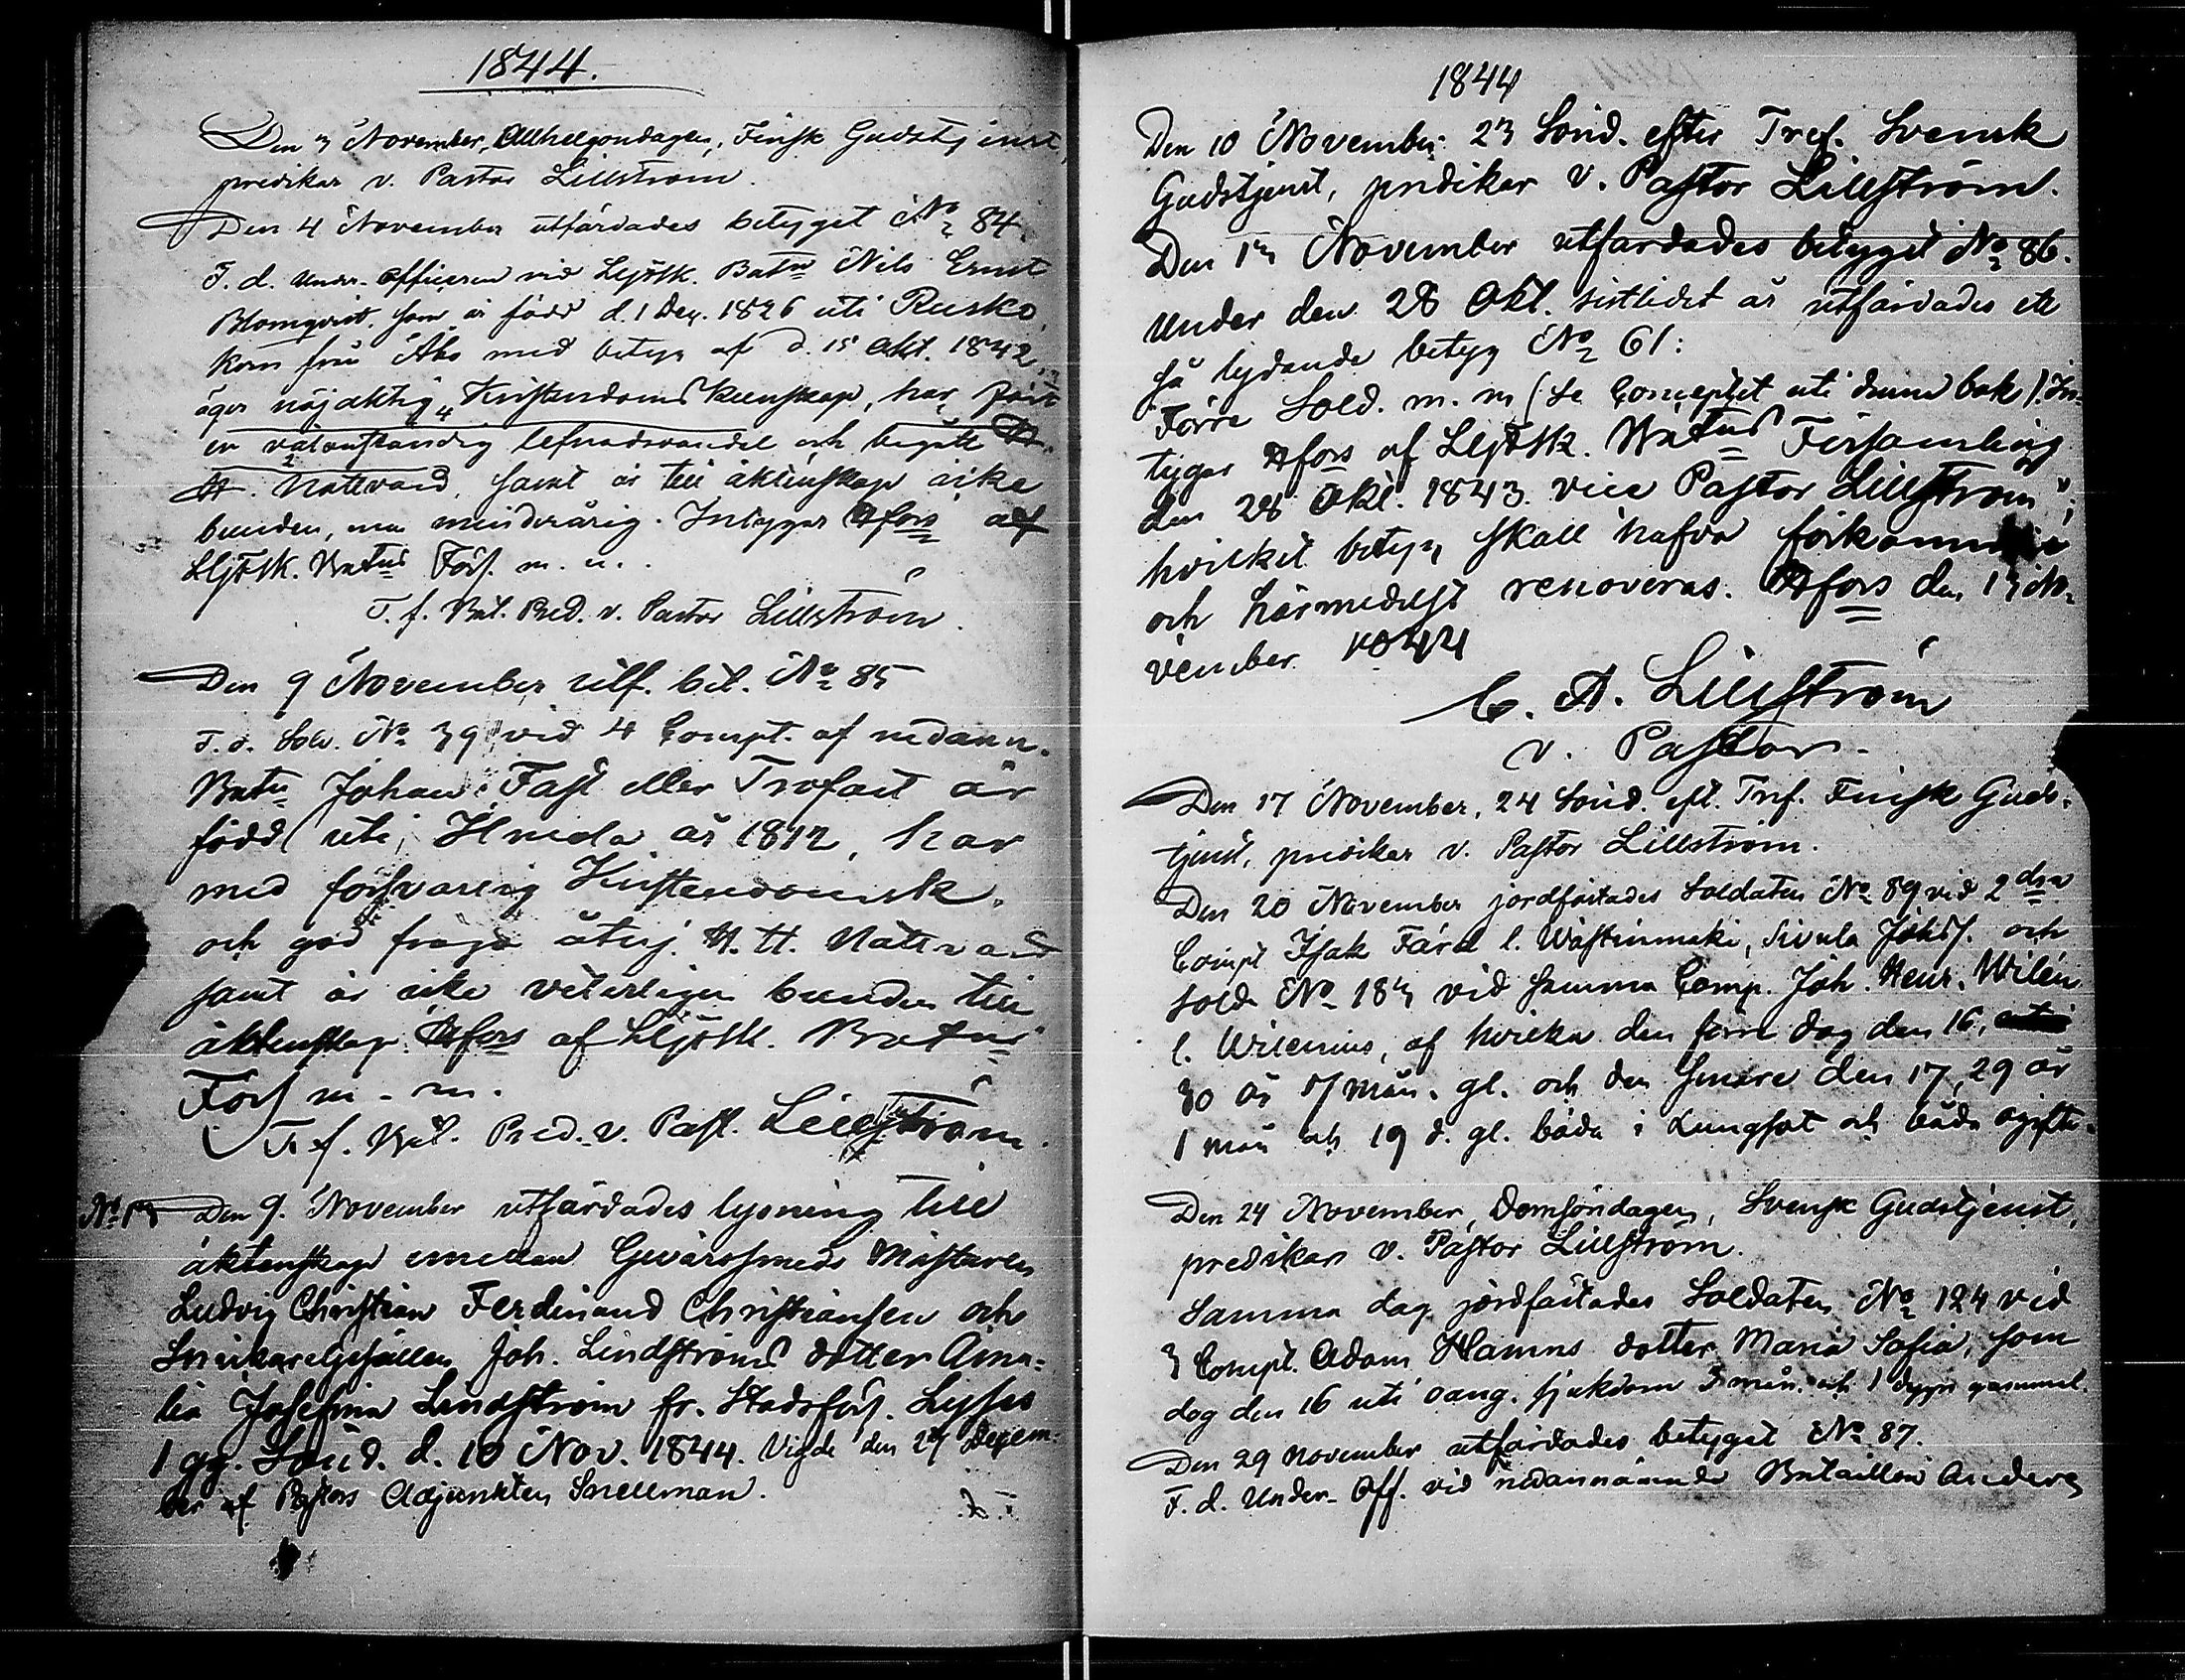 1844.
Den 3 November, Allhelgondagen, Finsk Gudstjenst,
predikar v. Pastor Lillström.
Den 4 November utfärdades betyget No 84.
F. d. Under-Officeren vid LifSk. Batn Nils Ernst
Blomqvist, som är född d. 1 Dec. 1826 uti Rusko,
kom från Åbo med betyg af d. 15 Okt. 1842,
äger nöjaktig Kristendoms Kunskap, har fört
en välanständig lefnadsvandel och begått H.
H. Nattvard, samt är till äktenskap icke
bunden, men minderårig. Intygar Hfors af
LifSk. Batns Förs. m. m.
T. f. Bat. Pred. v. Pastor Lillström.
Den 9 November utf. bet. No 85
F. d. Sold. No 39 vid 4 Compt. af nedann.
Batn Johan Fast eller Trofast är
född uti Hvida år 1812, har
med försvarlig Kristendomsk.
och god frägd återj. H. H. Nattvard
samt är icke veterligen bunden till
äktenskap. Hfors af LifSk. Batns
Förs m. m.
T. f. Bat. Pred. v. Past. Lillström.
No 13 Den 9. November utfärdades lysning till
äktenskap emellan Gevärssmeds Mästaren
Ludvig Christian Ferdinand Christiansen och
Snickaregesällen Joh. Lindströms dotter Ama=
lia Josefina Lindström fr. Stadsförs. Lyses
1 gg. Sönd. d. 10 Nov. 1844. Vigde den 27 Decem-
ber af Pastors Adjunkten Snellman.
1844
Den 10 November 23 Sönd. efter Tref. Svensk
Gudstjenst, predikar v. Pastor Lillström.
Den 13 November utfärdades betyget No 86.
Under den 28 Okt. sistlidet år utfärdades ett
så lydande betyg No 61:
Förre Sold. m. m (Se Conceptet uti denna bok). In-
tygar Hfors af LifSk. Batns Församling
den 28 Okt. 1843. vice Pastor Lillström";
hvilket betyg skall hafva förkommit
och härmedelst renoveras. Hfors den 13 No-
vember 1844
C. A. Lillström
v. Pastor.
Den 17 November, 24 Sönd. eft. Tref. Finsk Guds-
tjenst, predikar v. Pastor Lillström.
Den 20 November jordfästades Soldaten No 89 vid 2dra
Compt Isak Färd l. Wästinmäki, Sivula Johss. och
Sold. No 183 vid samma Comp. Joh. Henr. Wilén
l. Wilenius, af hvilka den förre dog den 16,
30 år 5 mån. gl. och den senare den 17, 29 år
1 mån och 19 d. gl. båda i Lungsot och båda ogifte.
Den 24 November, Domsöndagen, Svensk Gudstjenst,
predikar v. Pastor Lillström.
Samma dag jordfästades Soldaten No 124 vid
3 Compt. Adam Hamns dotter Maria Sofia, som
dog den 16 uti oang. sjukdom 3 mån. och 1 dygn gammal.
Den 29 November utfärdades betyget No 87.
F. d. Under-Off. vid nedannämnde Bataillon Anders